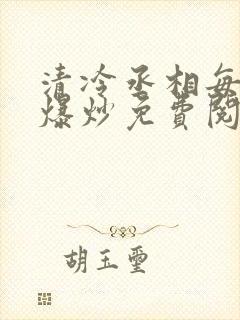 清冷丞相每
爆炒免費閱
胡玉璽